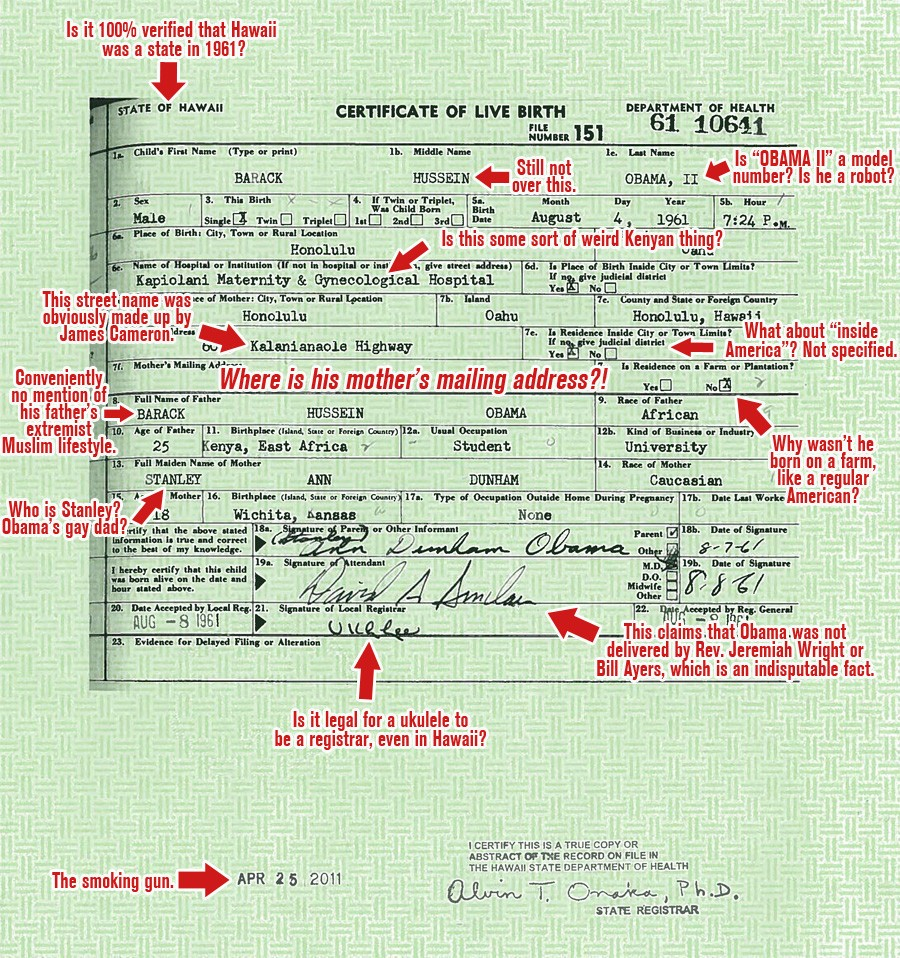 Is it 100% verified that Hawaii
was a state in 1961?
STATE OF HAWAII
CERTIFICATE OF LIVE BIRTH
DEPARTMENT OF HEALTH
FILE
NUMBER 151
61 10641
1a. Child's First Name (Type or print)
1b. Middle Name
1c. Last Name
BARACK
HUSSEIN
OBAMA, II
Still not
over this.
Is “OBAMA II” a model
number? Is he a robot?
2. Sex
Male
3. This Birth
Single X Twin Triplet
4. If Twin or Triplet,
Was Child Born
1st 2nd 3rd
5a. Birth Date
Month Day Year
August 4, 1961
5b. Hour
7:24 P.M.
6a. Place of Birth: City, Town or Rural Location
Honolulu
Oahu
Is this some sort of weird Kenyan thing?
6c. Name of Hospital or Institution (If not in hospital or give street address)
Kapiolani Maternity & Gynecological Hospital
6d. Is Place of Birth Inside City or Town Limits?
If no, give judicial district
Yes X No
This street name was
obviously made up by
James Cameron.
of Mother: City, Town or Rural Location
Honolulu
7b. Island
Oahu
7c. County and State or Foreign Country
Honolulu, Hawaii
Kalanianaole Highway
7e. Is Residence Inside City or Town Limits?
If no, give judicial district
Yes X No
What about “inside
America”? Not specified.
7f. Mother's Mailing
Where is his mother's mailing address?!
Is Residence on a Farm or Plantation?
Yes No X
Conveniently
no mention of
his father's
extremist
Muslim lifestyle.
8. Full Name of Father
BARACK HUSSEIN OBAMA
9. Race of Father
African
10. Age of Father
25
11. Birthplace (Island, State or Foreign Country)
Kenya, East Africa
12a. Usual Occupation
Student
12b. Kind of Business or Industry
University
Why wasn't he
born on a farm,
like a regular
American?
13. Full Maiden Name of Mother
STANLEY ANN DUNHAM
14. Race of Mother
Caucasian
Who is Stanley?
Obama's gay dad?
15. Mother
18
16. Birthplace (Island, State or Foreign Country)
Wichita, Kansas
17a. Type of Occupation Outside Home During Pregnancy
None
17b. Date Last Worked
certify that the above stated
information is true and correct
to the best of my knowledge.
18a. Signature of Parent or Other Informant
(Stanley) Ann Dunham Obama
Parent
Other
18b. Date of Signature
8-7-61
I hereby certify that this child
was born alive on the date and
hour stated above.
19a. Signature of Attendant
David A Sinclair
M.D.
D.O.
Midwife
Other
19b. Date of Signature
8-8-61
20. Date Accepted by Local Reg.
AUG -8 1961
21. Signature of Local Registrar
UKLee
22. Date Accepted by Reg. General
AUG -8 1961
This claims that Obama was not
delivered by Rev. Jeremiah Wright or
Bill Ayers, which is an indisputable fact.
23. Evidence for Delayed Filing or Alteration
Is it legal for a ukulele to
be a registrar, even in Hawaii?
The smoking gun.
APR 25 2011
I CERTIFY THIS IS A TRUE COPY OR
ABSTRACT OF TXE RECORD ON FILE IN
THE HAWAII STATE DEPARTMENT OF HEALTH
Alvin T. Onaka, Ph.D.
STATE REGISTRAR